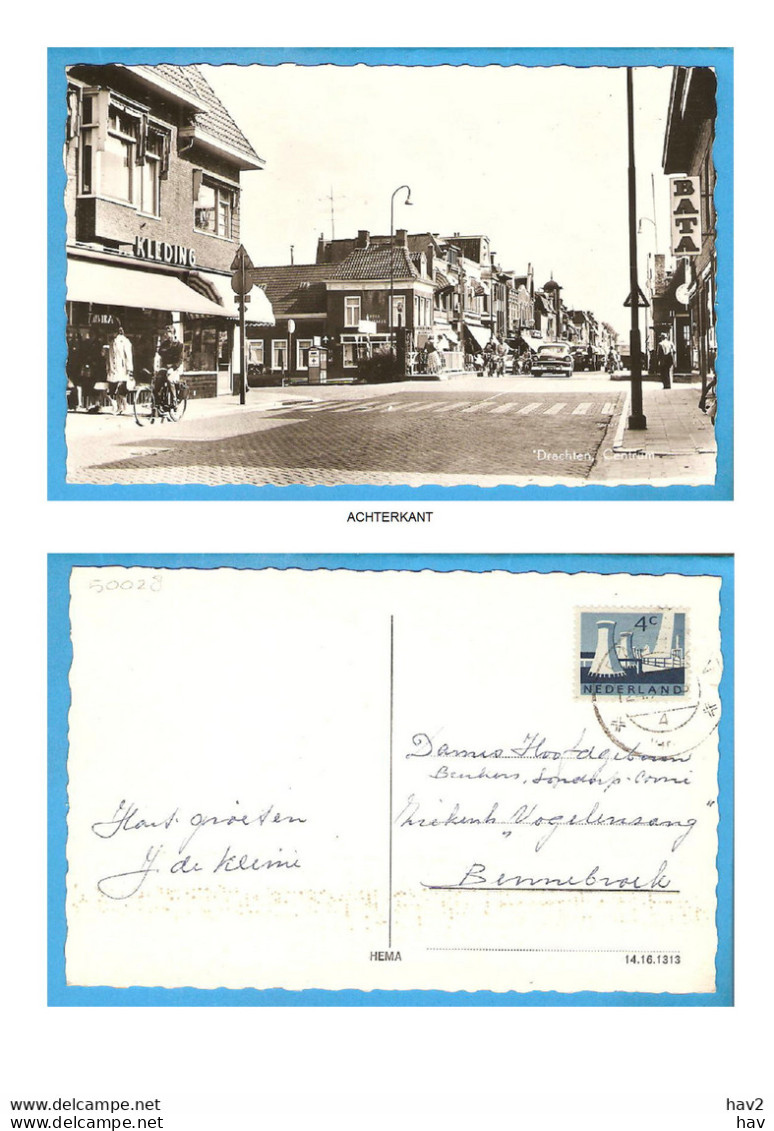 KLEDING
BATA
Drachten, Centrum
ACHTERKANT
50028
4c
NEDERLAND
Dames Hoofdgebouw
Beukers,
Ziekenh "Vogelenzang"
Bennebroek
Hart. groeten
J de Kleine
HEMA
14.16.1313
hav2
www.delcampe.net
hav